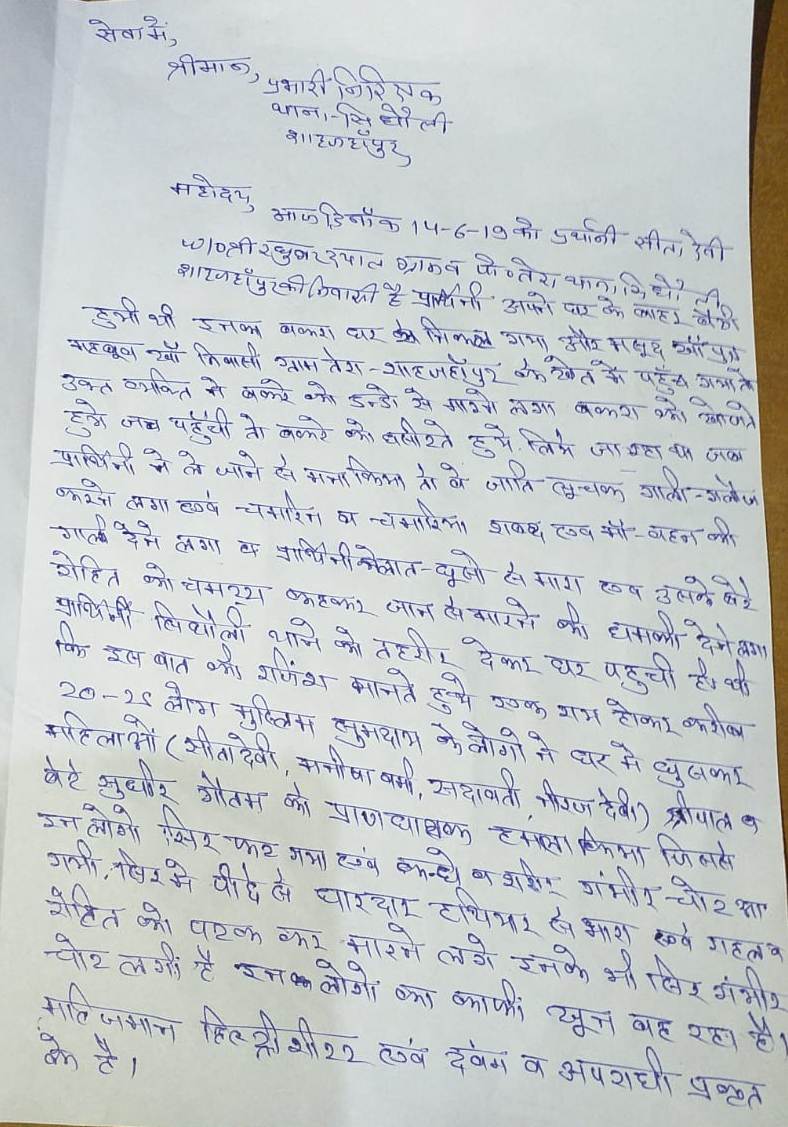 सेवा में,
श्रीमान,
प्रभारी निरिक्षक
थाना-सिधौली
शाहजहाँपुर
महोदय,
आज दिनाँक 14-6-19 को प्रार्थनी सीता देवी
w/o श्री रघुबर दयाल ग्राम व पो० तेरा थाना सिधौली
शाहजहाँपुर की निवासी है प्रार्थिनी अपने घर के बाहर बैठी
हुयी थी इनका बकरा घर से निकल गया और मसूद खाँ पुत्र
महबूब खाँ निवासी ग्राम तेरा-शाहजहाँपुर के खेत में पहुँच गया तो
उक्त व्यक्ति ने बकरे को डन्डो से मारने लगा बकरा को खोजते
हुये जब पहुंची तो बकरे को घसीटते हुये लिये जा रहा था जब
प्रार्थिनी ने ले जाने से मना किया तो वे जाति सूचक गाली-गलौज
करने लगा एवं चमारिन व चमारिया शब्द एवं माँ-बहन की
गाली देने लगा व प्रार्थिनी को लात-घूसो से मारा एवं उसके बेटे
रोहित को चमट्टा कहकर जान से मारने की धमकी देने लगा
प्रार्थिनी सिधौली थाने को तहरीर देकर घर पहुची ही थी
कि इस बात को रंजिश मानते हुये एक राय होकर करीब
20-25 लोग मुस्लिम समुदाय के लोगो ने घर में घुसकर
महिलाओं (सीता देवी, मनीषा वर्मा, सदावती, नीरज देवी) श्रीपाल व
बेटे सुधीर गौतम को प्राण घातक हमला किया जिससे
इन लोगो सिर फट गया एवं कन्धे व शरीर गंभीर चोट आ
गयी, सिर में पीछे से धारदार हथियार से मारा एवं राहुल व
रोहित को पटक कर मारने लगे इनके भी सिर गंभीर
चोट लगी है इनके लोगो का काफी खून बह रहा है।
हिस्ट्रीशीटर एवं दबंग व अपराधी प्रकृत
के है।